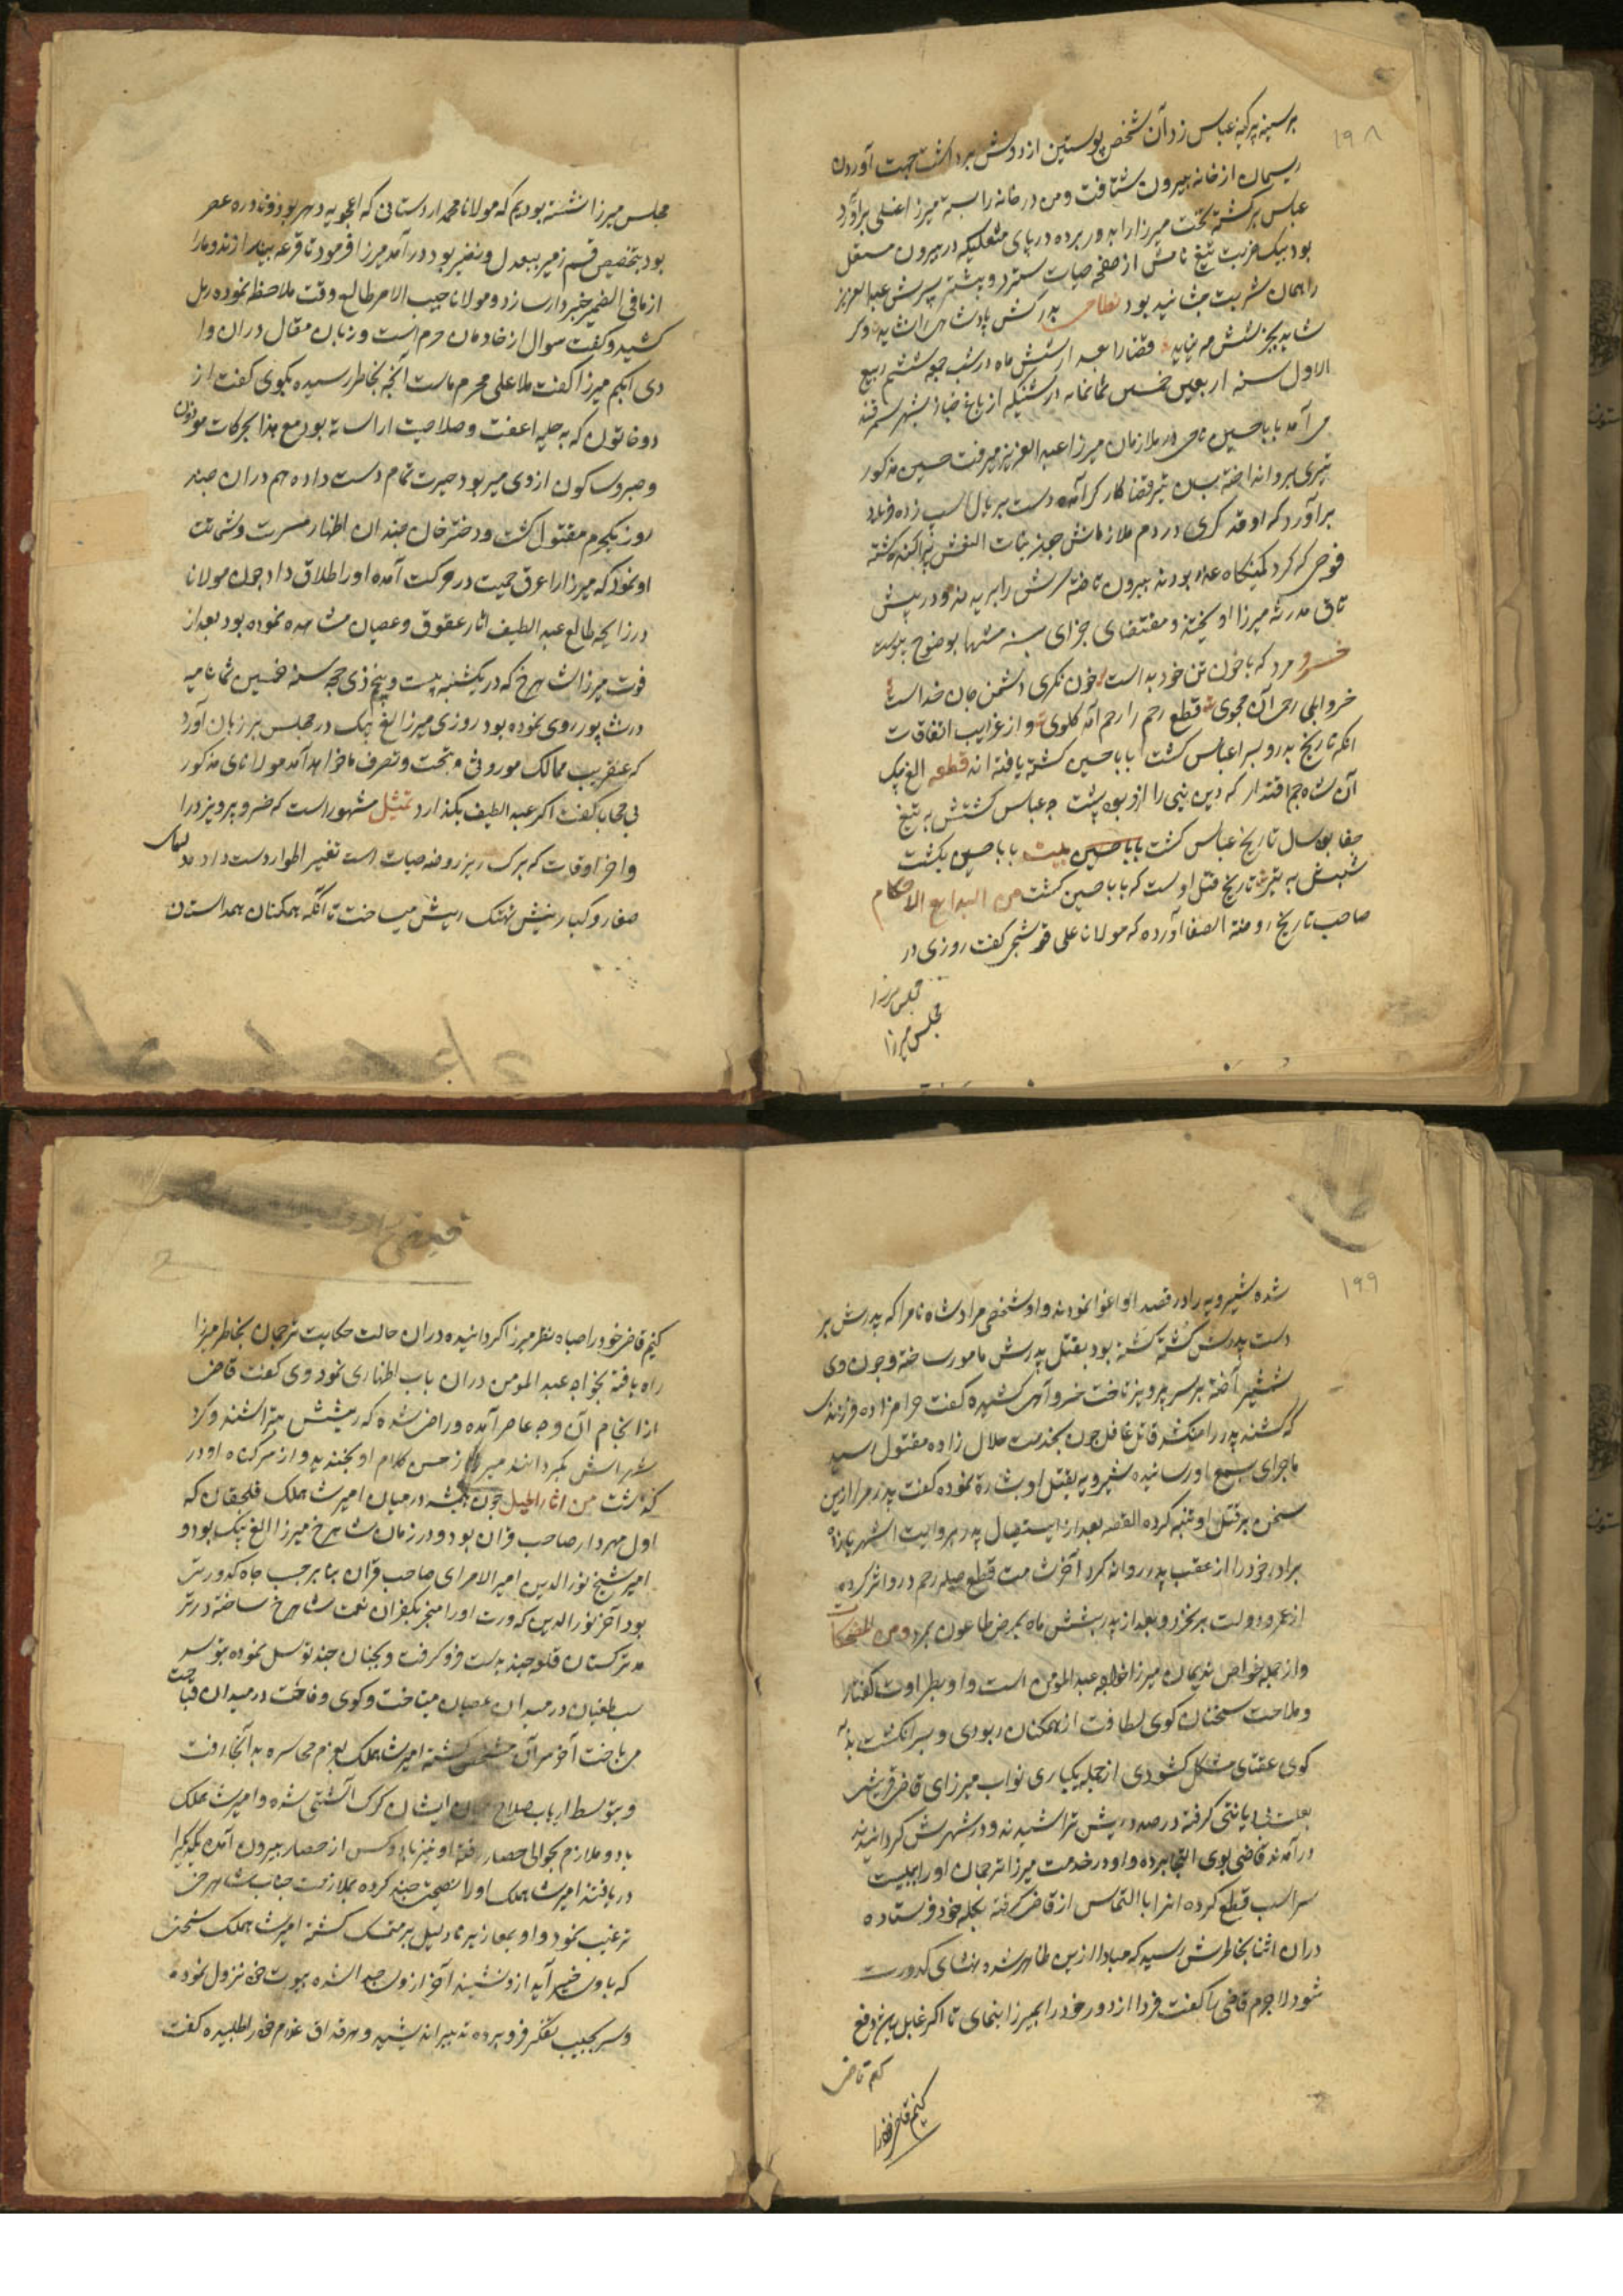 ۱۹۸
بر سینه پر کینه عباس زد آن شخص پوستین از دوش برداشت جهت آوردن
ریسمان از خانه بیرون شتافت و من در خانه را بسته میرزا غسلی برآورد
عباس برگشته نخست میرزا را بدر برده در پای مشعلی که در بیرون مشتعل
بود بیک ضربت تیغ نامش از صفحه حیات سترد و پیشتر پسرش عبدالعزیز
را همان شربت چشانیده بود نظامی پدرکش پادشاهی را نشاید وگر
شاید بجز شش مه نپاید قضا را بعد از شش ماه در شب جمعه ششم ربیع
الاول سنه اربع و خمسین ثمانمائه در شبیکه از باغ بشهر سمرقند
می آمد بابا حسین نامی از ملازمان میرزا عبدالعزیز میرفت حسین مذکور
تیری برو انداخته بدان تیر قضا کارگر آمده دست بر یال اسپ زده فریاد
برآورد که اوقه کری در دم ملازمانش چون بنات النعش پراکنده گشته
فوجی که گرد کمینگاه غدر بودند بیرون تاخته سرش را بریدند و در پیش
طاق مدرسه میرزا آویختند و مقتضای جزای سیئة مثلها بوضوح پیوست
خسرو مرد که با خون تن خود بد است خون نکری دشمن جان خداست
خرو ابلهی رحم از آن مجوی قطع رحم را رحم آمد کلوی و از غرایب اتفاقات
آنکه تاریخ پدر و پسر را عباس کشت و بابا حسین کشت یافته اند قطعه الغ بیک
آن شاه جم اقتدار که دین نبی را ازو بود پشت چو عباس کشتش به تیغ
جفا بود سال تاریخ عباس کشت بابا حسین بیت بابا حسین بکشت
شب جمعه به تیرش تاریخ قتل اوست که بابا حسین کشت من البدایع الاحکام
صاحب تاریخ روضة الصفا آورده که مولانا علی قوشجی گفت روزی در
مجلس میرزا
مجلس میرزا
مجلس میرزا نشسته بودیم که مولانا محمد اردستانی که اعجوبه دهر بود و نادره عصر
بود بتخصیص قسم زمیر ببعدل و نظیر بود درآمد میرزا فرمود تا قرعه بیندازند و ما را
از ما فی الضمیر خبردار سازد و مولانا حسب الامر طالع وقت ملاحظه نموده رمل
کشید و گفت سوال از خادمان حرم است و زبان مقال دران وا
دی ابکم میرزا گفت ملا علی محرم ماست آنچه بخاطر رسیده بگوی گفت از
دو خاتون که به حلیه عفت و صلاحیت آراسته بود مع هذا بحرکات موزون
و صبر و سکون از وی میربود حیرت تمام دست داده هم دران چند
روز یکجرم مقتول گشت و دختر خان چندان اظهار مسرت و شماتت
او نمود که میرزا را عرق حمیت در حرکت آمده او را طلاق داد چون مولانا
در زایچه طالع عبداللطیف آثار عقوق و عصیان مشاهده نموده بود بعد از
فوت میرزا شاهرخ که در یکشنبه بیست و پنج ذی حجه سنه خمسین ثمانمایه
در نشاپور روی نموده بود روزی میرزا الغ بیک در مجلس بر زبان آورد
که عنقریب ممالک موروثی تحت و تصرف ما خواهد آمد مولانای مذکور
بی محابا گفت اگر عبداللطیف بگذارد تمثیل مشهور است که خسرو پرویز را
و اخر اوقات که برگ ریز روضه حیات است تغییر اطوار دست داده
صغار و کبار بنیش نهتک ریش میساخت تا آنکه همگنان همداستان
۱۹۹
شده شیرویه را در قصد او اغوا نمودند و او شخصی مراد شاه نام را که پدرش بر
دست پدرش کشته گشته بود بقتل پدرش مامور ساخته و چون وی
شمشیر آخته بر سر پرویز تاخت خسرو آهی کشیده گفت حرامزاده فرزندی
که کشنده پدر را نکشد قاتل غافل چون بخدمت حلال زاده مقتول رسید
ماجرای بسمع او رسانیده شیرویه بقتل او بشاره نموده گفت پدرم مرا ازین
سخن بر قتل او تنبه کرده القصه بعد از استیصال پدر بروایت اشهر پانزده
برادر خود را از عقب پدر روانه کرد آخر شامت قطع صله رحم درو اثر کرده
از عمر و دولت بر نخورد و بعد از پدر بشش ماه بمرض طاعون بمرد و من المضحکات
و از جمله خواص ندیمان میرزا خواجه عبدالمومن است و او بطراوت گفتار
و ملاحت سخنان گوی لطافت از همگنان ربودی و بسر انگشت بذله
گوی عقدهای مشکل گشودی از جمله یکباری نواب میرزای قاضی قرشی
بعلت بی دیانتی گرفته در صدد ریش تراشیدند و در شهرش گردانیدند
درآمدند قاضی بوی التجا برده و او در خدمت میرزا ترجمان او را به بیست
سر اسب قطع کرده آنرا با التماس از قاضی گرفته بکله خود فرستاده
دران اثنا بخاطرش رسید که مبادا ازین ظاهر شده منشای کدورت
شود لاجرم قاضی را گفت فردا از دور خود را بمیرزا بنمای تا اگر غلبه دفع
کنم قاضی
کنم قاضی خود را
کنم قاضی خود را صباح بنظر میرزا گردانیده دران حالت حکایت ترجمان بخاطر میرزا
راه یافته بخواجه عبدالمومن دران باب اظهاری نمود وی گفت قاضی
از انجام آن وجه عاجز آمده و راضی شده که ریشش بتراشند و گرد
شهرش بگردانند میرزا از حسن کلام او بخندید و از سر گناه او در
گذشت من اثار الحیل چون همیشه در میان امیر شاهملک قلجقان که
اول مهردار صاحب قران بود و در زمان شاهرخ میرزا الغ بیک بود و
امیر شیخ نورالدین امیر الامرای صاحب قران بنا بر حب جاه کدورتی
بود آخر نورالدین کدورت او را منجر بکفران نعمت شاهرخ ساخته در
ترکستان قلعه چند بدست فرو گرفت و بخانان چند توسل نموده
طغیان در میدان عصیان میتاخت و گوی وقاحت در میدان قباحت
می باخت آخر سر آن مشخص گشته امیر شاهملک بعزم محاسره بدانجا رفت
و بتوسط ارباب صلاح میان ایشان گرگ آشتی شده و امیر شاهملک
با دو ملازم بحوالی حصار رفته او نیز با دو کس از حصار بیرون آمده یکدیگر را
دریافتند امیر شاهملک اول نصیحت چند کرده بملازمت جناب شاهرخی
ترغیب نمود و او بمعاذیر نادلپذیر متمسک گشته امیر شاهملک سخنی
که باوی خیر آید ازو نشنید آخر ازوی جدا شده بیورت خود نزول نموده
و سر بجیب تفکر فرو برده تدبیر اندیشید و هرقداق غلام خود را طلبیده گفت